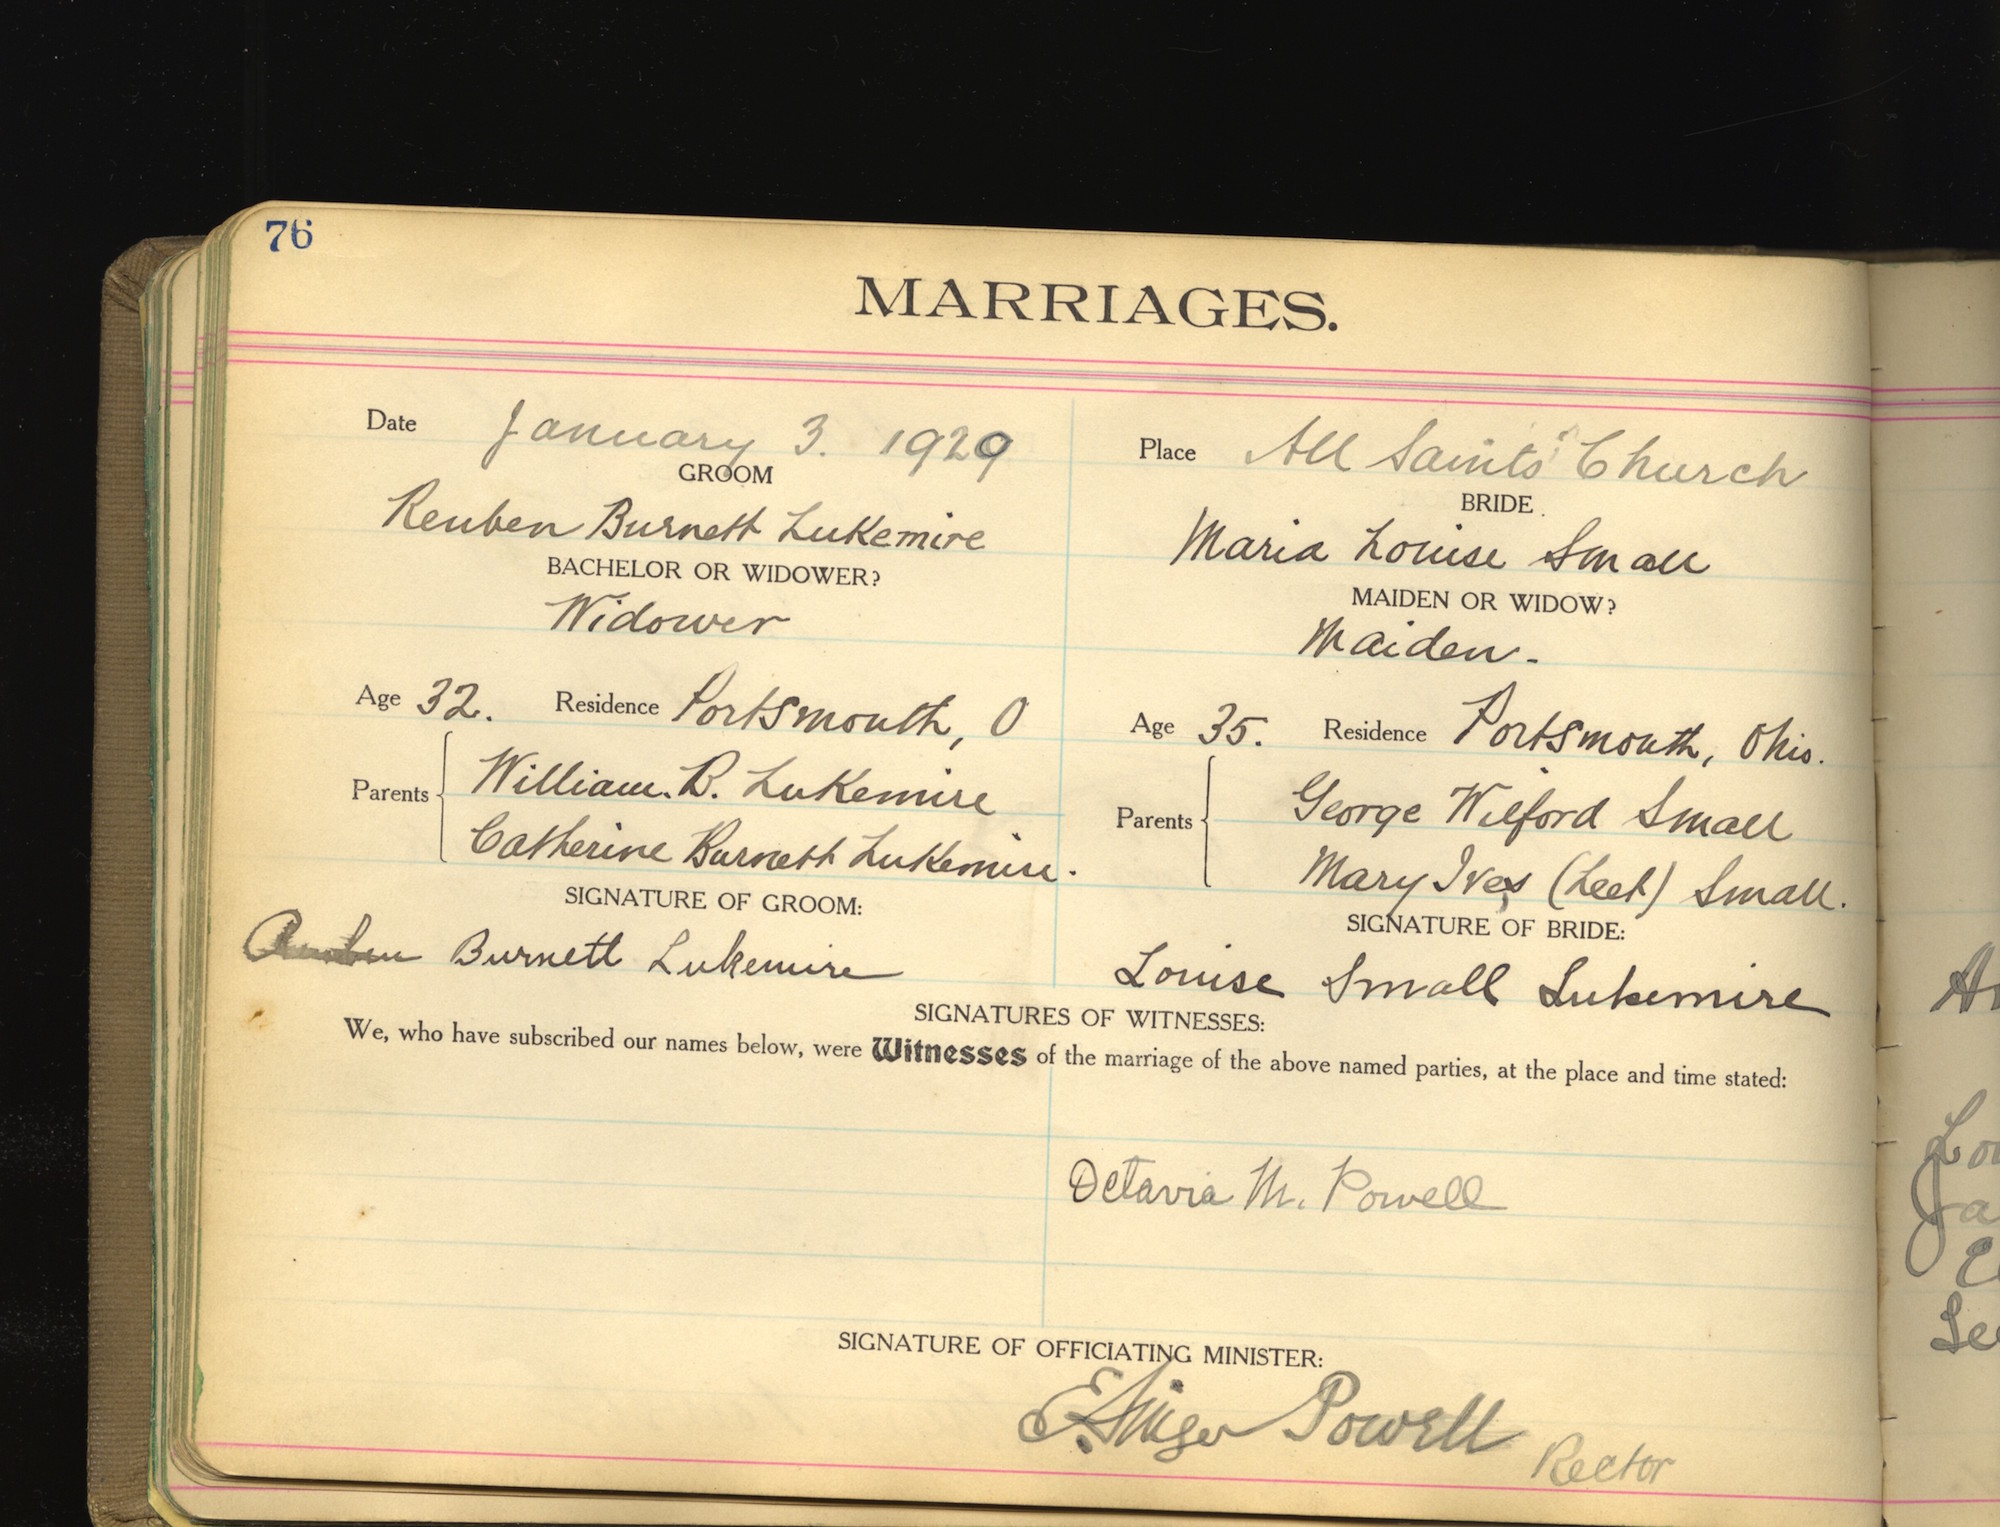 76
MARRIAGES.
Date January 3. 1929
Place All Saints' Church
GROOM
BRIDE.
Reuben Burnett Lukemire
Maria Louise Small
BACHELOR OR WIDOWER?
MAIDEN OR WIDOW?
Widower
Maiden.
Age 32. Residence Portsmouth, O
Age 35. Residence Portsmouth, Ohio.
Parents William. B. Lukemire
Catherine Burnett Lukemire.
Parents George Wilford Small
Mary Ives (Leet) Small.
SIGNATURE OF GROOM:
SIGNATURE OF BRIDE:
Reuben Burnett Lukemire
Louise Small Lukemire
SIGNATURES OF WITNESSES:
We, who have subscribed our names below, were Witnesses of the marriage of the above named parties, at the place and time stated:
Octavia M. Powell
SIGNATURE OF OFFICIATING MINISTER:
E. Ainger Powell
Rector